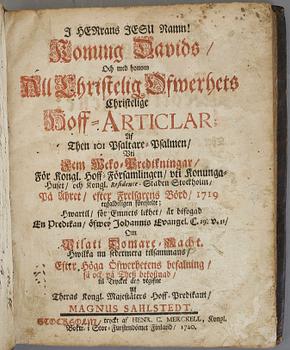 I HERrans JESU Namn!
Konung Davids/
Och med honom
All Christelig Öfwerhets
Christelige
Hoff-ARTICLAR:
Af
Then 101 Psaltare-Psalmen/
Uti
Fem Weko-Predikningar/
För Kongl. Hoff-Församlingen/ uti Konunga-
Huset/ och Kongl. Residence-Staden Stockholm/
På Åhret/ efter Frelsarens Börd/ 1719
Hwartil/ för Emnets likhet/ är bifogad
En Predikan/ öfwer Johannis Evangel. C. 19: v. 11/
Om
Pilati Domare-Macht.
Hwilka nu sedermera tilsammans/
Efter Höga Öfwerhetens befalning/
så och på Theß bekostnad/
til Trycket äro utgifne
Af
Theras Kongl. Majestäters Hoff-Predikant/
MAGNUS SAHLSTEDT.
STOCKHOLM/ tryckt af HENR. C. MERCKELL, Kongl.
Boktr. i Stor-Furstendömet Finland/ 1720.